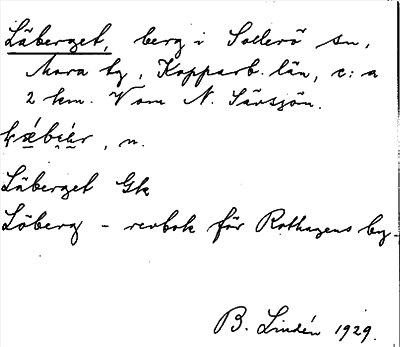 Läberget, berg i Sollerö sn,
Mora tg, Kopparb. län, c:a
2 km. V om N. Särsjön.
n.
Läberget Gk
Löberg - revbok för Rothagens by.
B. Lindén 1929.